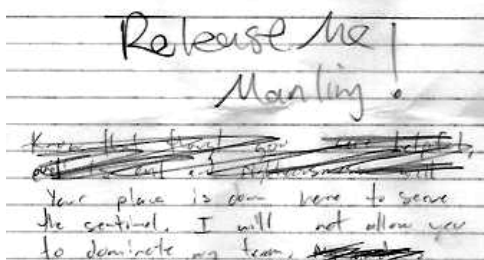 Release Me
Manling!
Know that though you are helpful,
Your place is down here to serve
the sentinel. I will not allow you
to dominate my team.